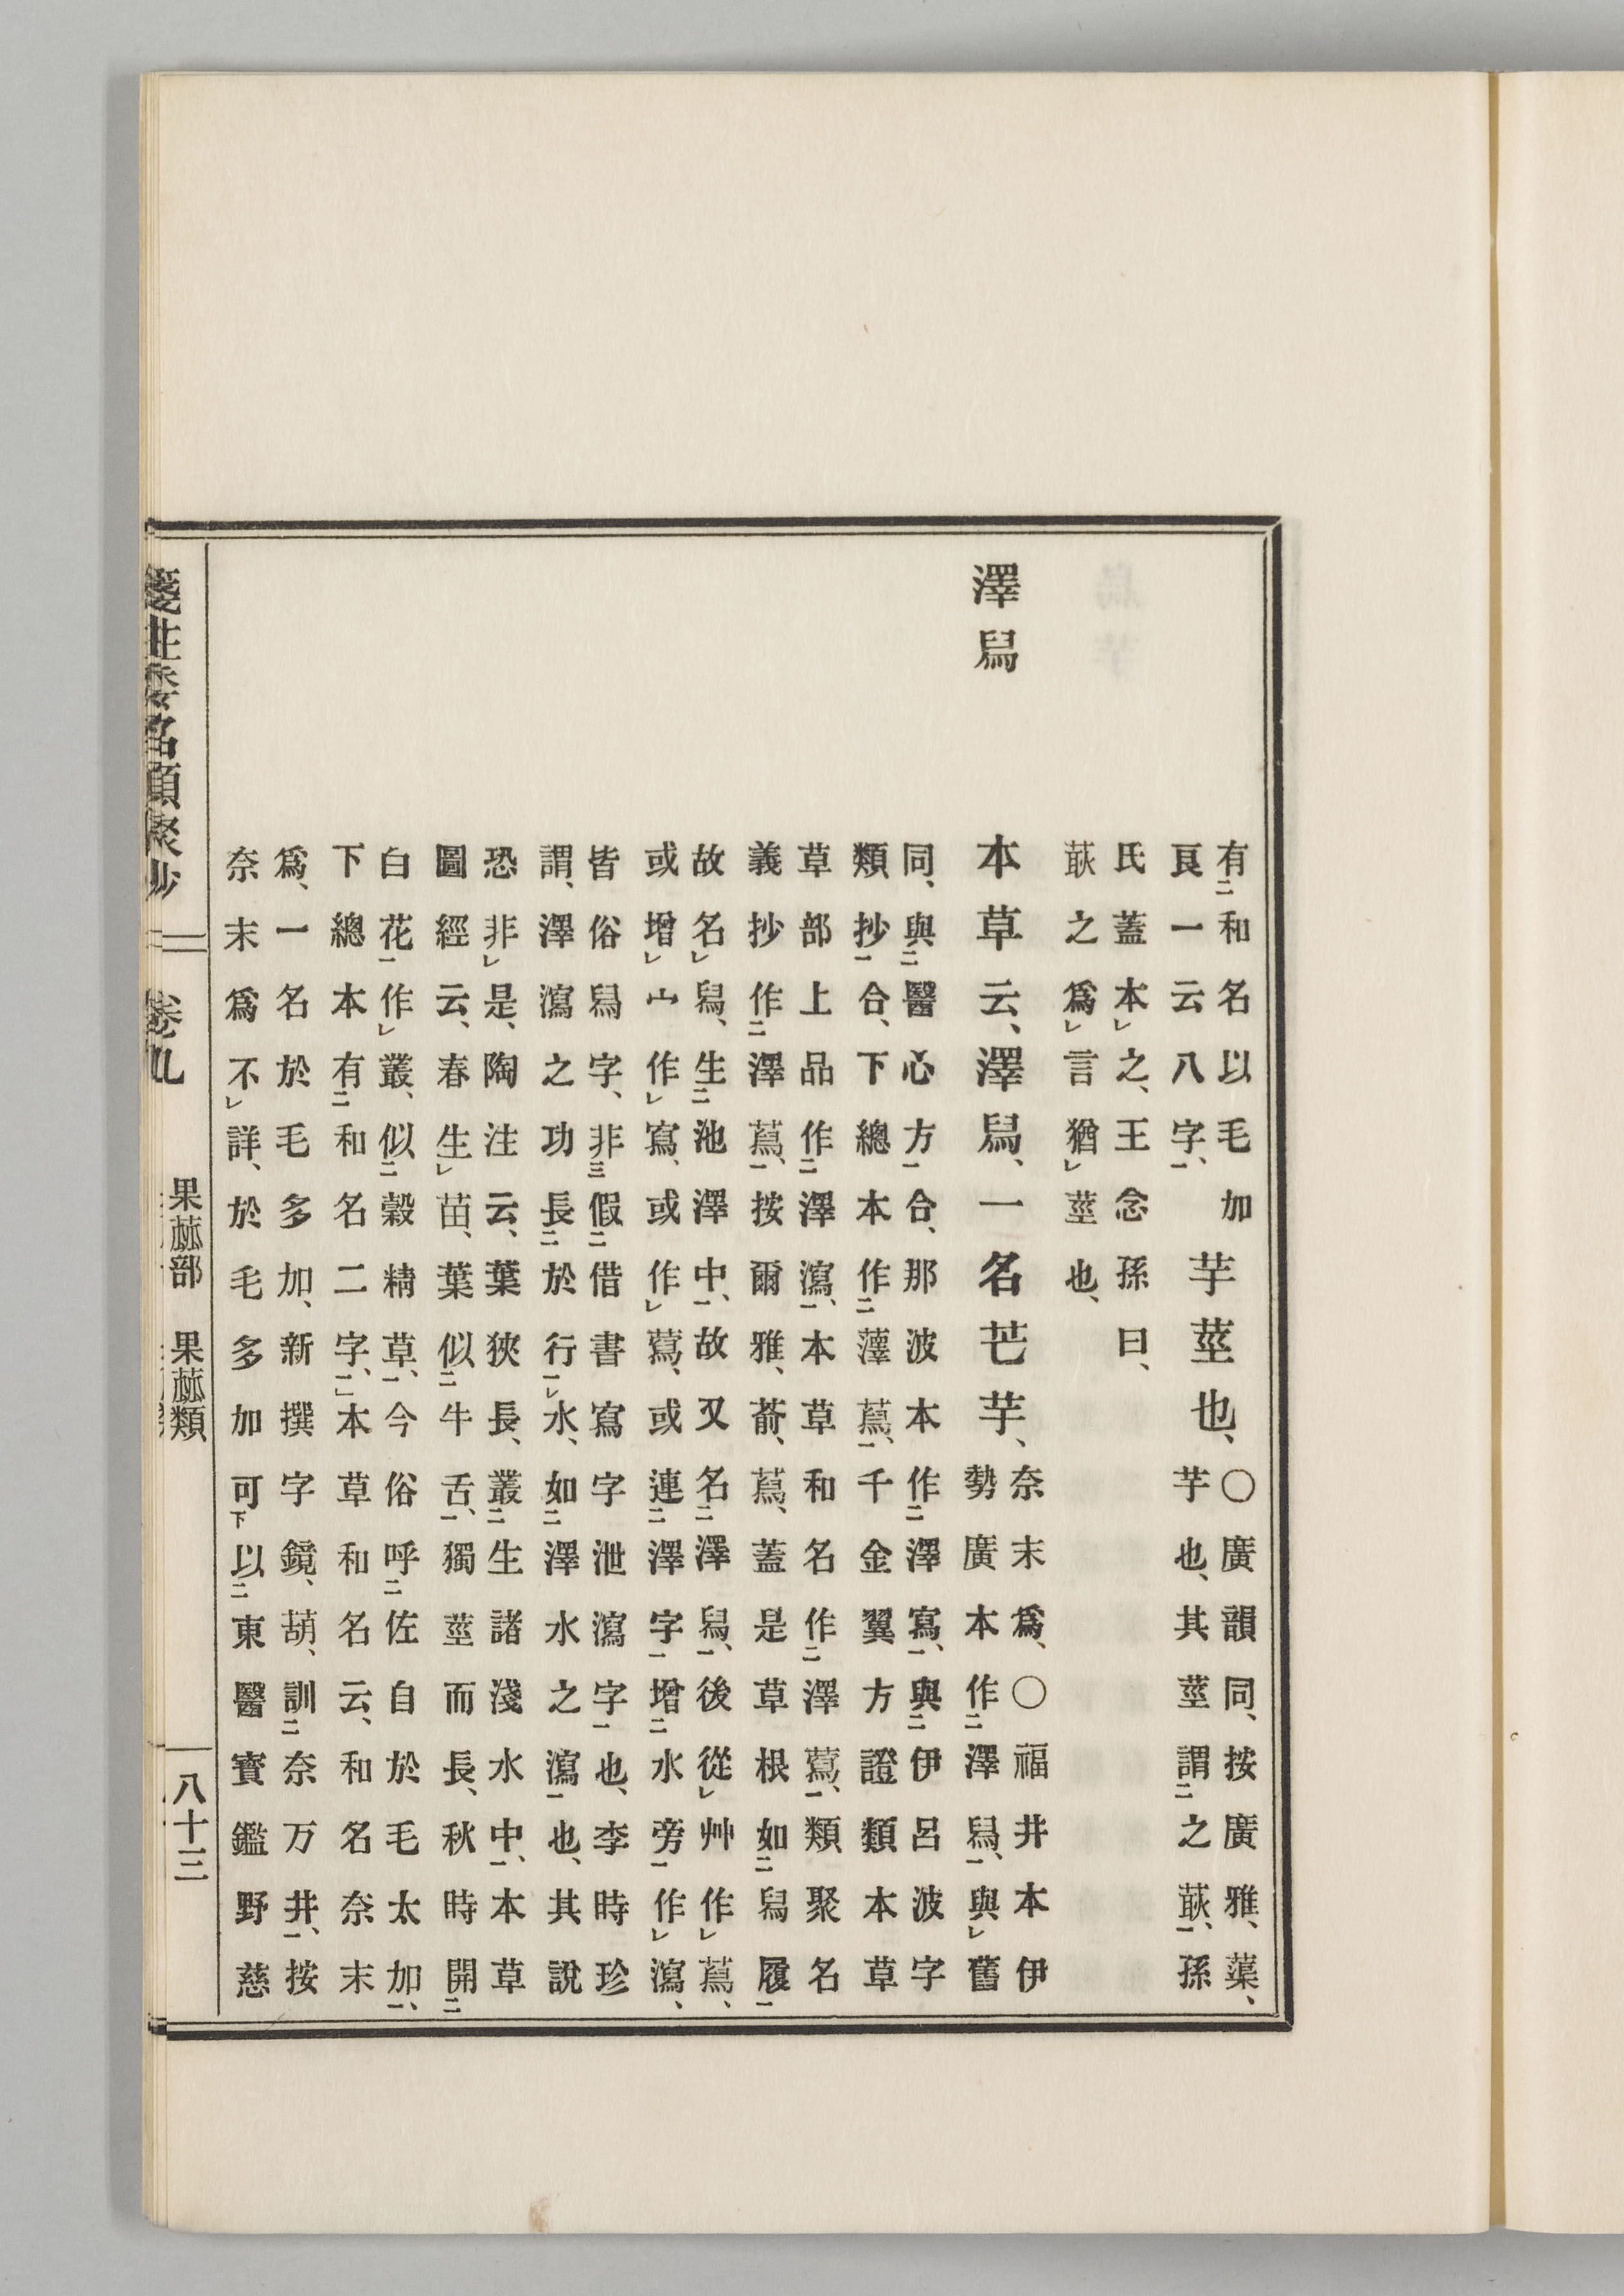 有二和名以毛加
良一云八字一、
芋莖也、
○廣韻同、按廣雅、蕖、
芋也、其莖謂二之一、孫
氏蓋本レ之、王念孫曰、
之爲レ言猶レ莖也、
澤舄
本草云、澤舄、一名芒芋、
奈末爲、○福井本伊
勢廣本作二澤舄一、與レ舊
同、與二醫心方一合、那波本作二澤寫一、與二伊呂波字
類抄一合、下總本作二蕮一、千金翼方證類本草
草部上品作二澤瀉一、本草和名作二澤藛一、類聚名
義抄作二澤蕮一、按爾雅、蕍、蕮、蓋是草根如二舄履一
故名レ舄、生二池澤中一、故又名二澤舄一、後從レ艸作レ蕮、
或增レ宀作レ寫、或作レ藛、或連二澤字一增二水旁一作レ瀉、
皆俗舄字、非三假二借書寫字泄瀉字一也、李時珍
謂、澤瀉之功長二於行一レ水、如二澤水之瀉一也、其說
恐非レ是、陶注云、葉狹長、叢二生諸淺水中一、本草
圖經云、春生レ苗、葉似二牛舌一、獨莖而長、秋時開二
白花一作レ叢、似二穀精草一、今俗呼二佐自於毛太加一、
下總本有二和名二字一、本草和名云、和名奈末
爲、一名於毛多加、新撰字鏡、葫、訓二奈万井一、按
奈末爲不レ詳、於毛多加可下以二東醫寶鑑野慈
箋注倭名類聚抄　卷九　果蓏部　果蓏類　八十三